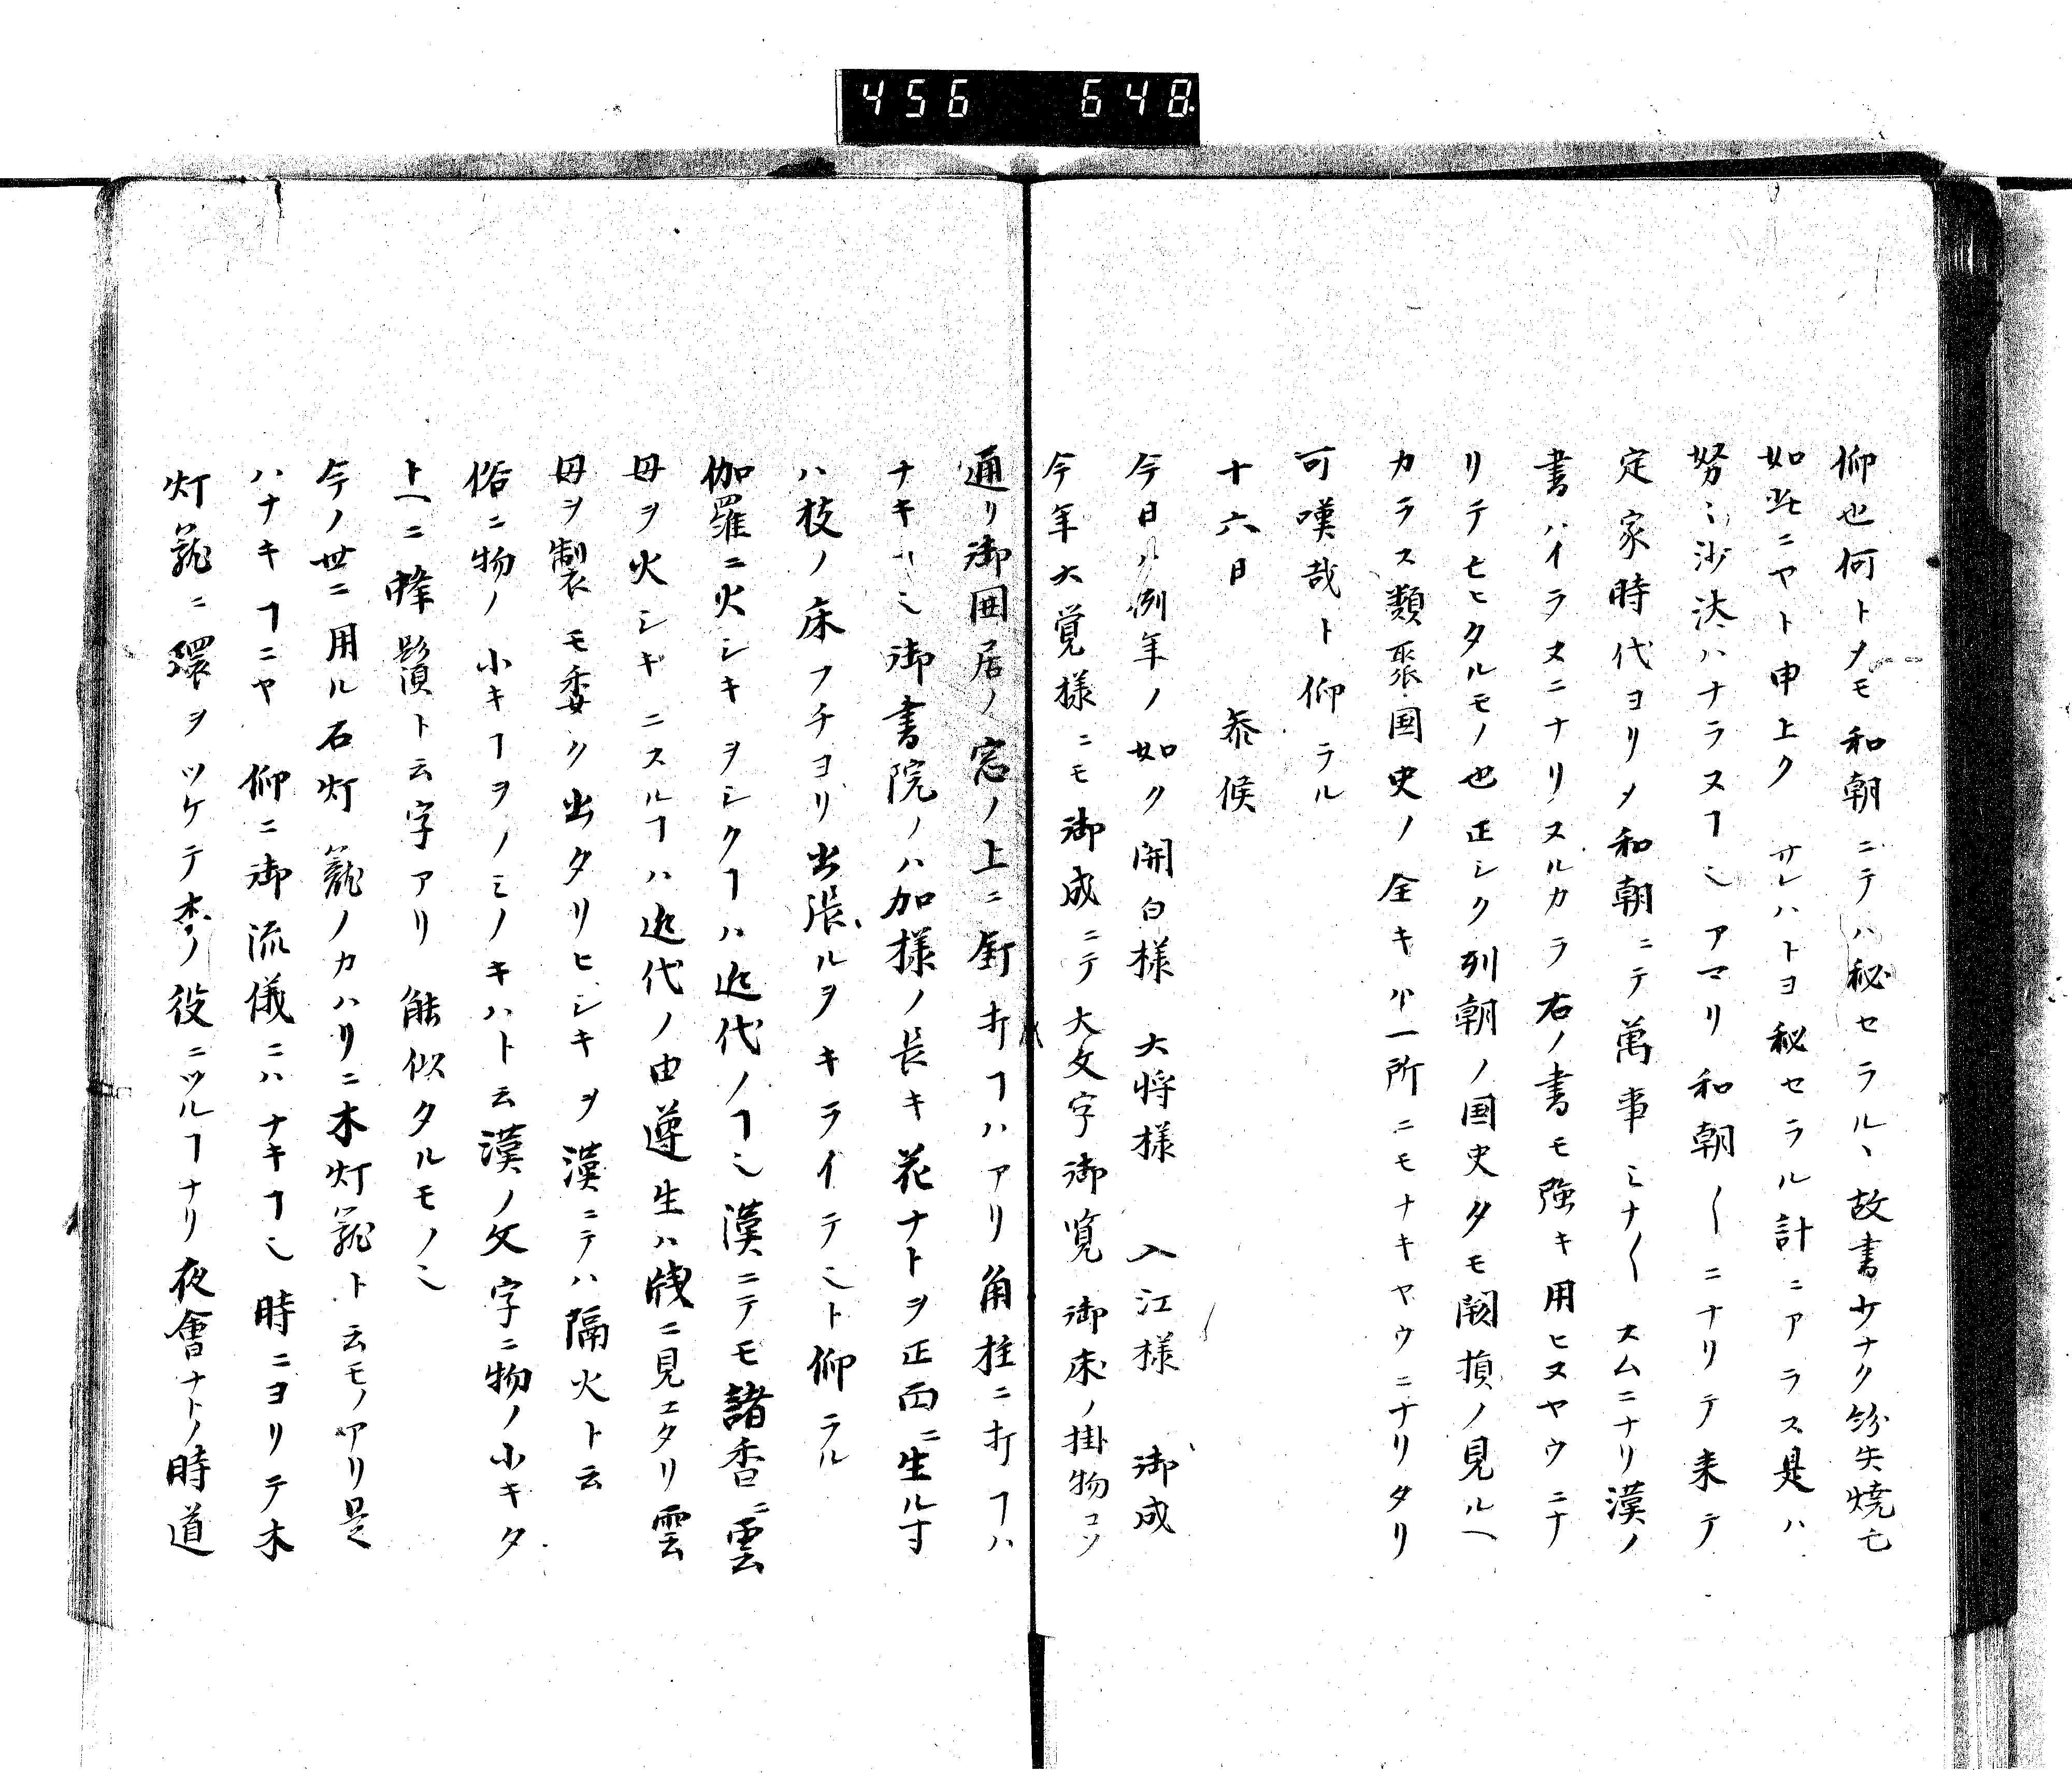 456 648
仰也何トメモ和朝ニテハ秘セラル丶故書少ナク紛失焼亡
如此ニヤト申上ク サレハトヨ秘セラル計ニアラス是ハ
努ミ沙汰ハナラヌヿ也アマリ和朝〳〵ニナリテ来テ
定家時代ヨリメ和朝ニテ萬事ミナ〳〵スムニナリ漢ノ
書ハイラヌニナリヌルカラ右ノ書モ強キ用ヒヌヤウニナ
リテセヒタルモノ也正シク列朝ノ国史タモ闕損ノ見ルヘ
カラス類聚国史ノ全キハ一所ニモナキヤウニナリタリ
可嘆哉ト仰ラル
十六日 参候
今日ハ例年ノ如ク開白様 大将様 入江様 御成
今年大覚様ニモ御成ニテ大文字御覧 御床ノ掛物コソ
通リ御囲居ノ窓ノ上ニ釘打ヿハアリ角柱ニ打ヿハ
ナキヿ也御書院ノハ加様ノ長キ花ナトヲ正面ニ生ル寸
ハ枝ノ床フチヨリ出張ルヲキライテ也ト仰ラル
伽羅ニ火シキヲシクヿハ近代ノヿ也漢ニテモ諸香ニ雲
母ヲ火シキニスルヿハ近代ノ由遵生ハ牋ニ見エタリ雲
母ヲ製モ委ク出タリヒシキヲ漢ニテハ隔火ト云
俗ニ物ノ小キヿヲノミノキハト云漢ノ文字ニ物ノ小キタ
トヘニ蜂鬚ト云字アリ 能似タルモノ也
今ノ世ニ用ル石灯籠ノカハリニ木灯籠ト云モノアリ是
ハナキヿニヤ 仰ニ御流儀ニハナキヿ也時ニヨリテ木
灯籠ニ環ヲツケテ李ノ役ニツルヿナリ夜會ナトノ時道